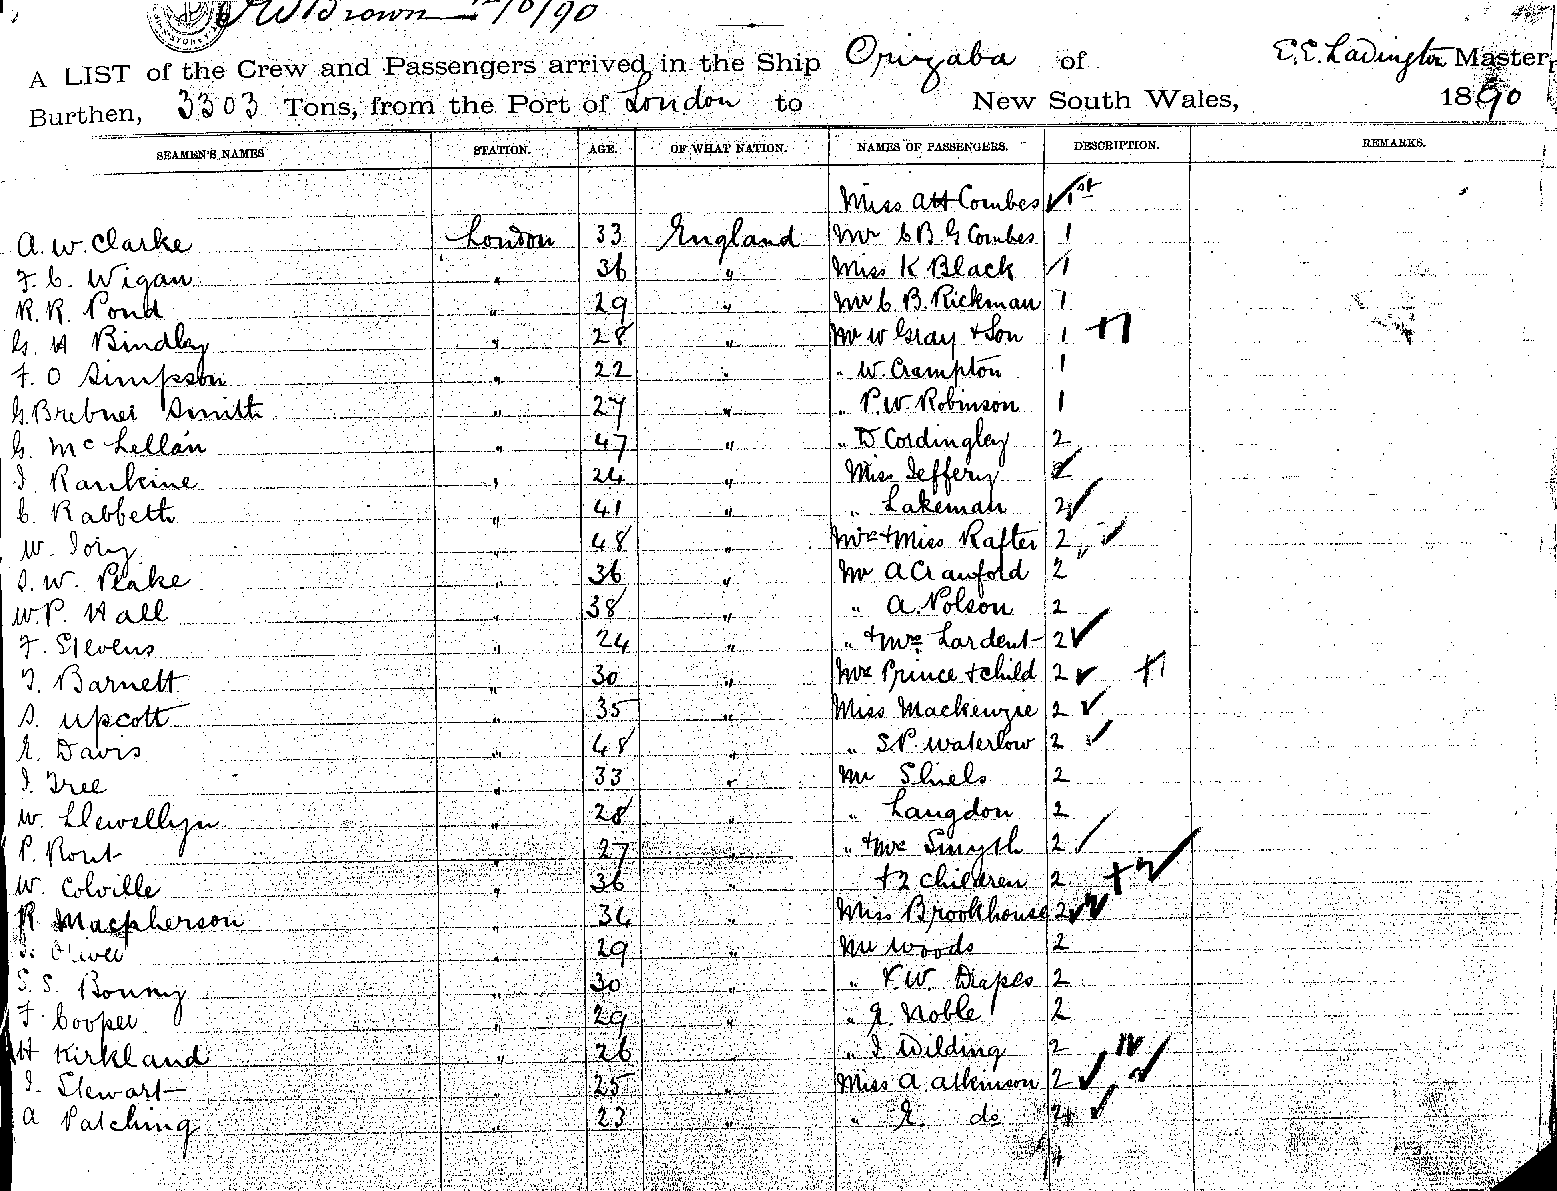 J W Brown 12/8/90
A LIST of the Crew and Passengers arrived in the Ship Orizaba of E. E. Ladington Master,
Burthen, 3303 Tons, from the Port of London to New South Wales, 1890
SEAMEN'S NAMES STATION. AGE. OF WHAT NATION. NAMES OF PASSENGERS. DESCRIPTION. REMARKS.
Miss A H Combes 1st
A. W. Clarke London 33 England Mr C B G Combes 1
F. C. Wigan " 36 " Miss K Black 1
R. R. Pond " 29 " Mr C B. Rickman 1
G. H Bindley " 28 " Mr W Gray + Son 1 +1
F. O Simpson " 22 " " W. Crampton 1
G. Brebner Smith " 27 " " P. W Robinson 1
G. McLellan " 47 " " D Cordingley 2
J. Rankine " 24 " Miss Jeffery 2
C. Rabbeth " 41 " " Lakeman 2
W. Jory " 48 " Mrs + Miss Rafter 2 "
S. W. Peake " 36 " Mr A Crawford 2
W. P. Hall " 38 " " A. Polson 2
F. Stevens " 24 " " + Mrs Lardent 2
T. Barnett " 30 " Mrs Prince + child 2 +1
S. Upcott " 35 " Miss Mackenzie 2
E. Davis " 48 " " S P. Waterlow 2
J. Tree " 33 " Mr Shiels 2
W. Llewellyn " 28 " " Langdon 2
P. Rout " 27 " " + Mrs Smyth 2
W. Colville " 36 " + 2 children 2 +2
R Macpherson " 34 " Miss Brookhouse 2
" 29 " Mr Woods 2
S. S. Bonny " 30 " " F. W. Drapes 2
F. Cooper " 29 " " E. Noble 2
H Kirkland " 26 " " J Wilding 2
J. Stewart " 25 " Miss A. Atkinson 2
A Patching " 23 " " E. do 2